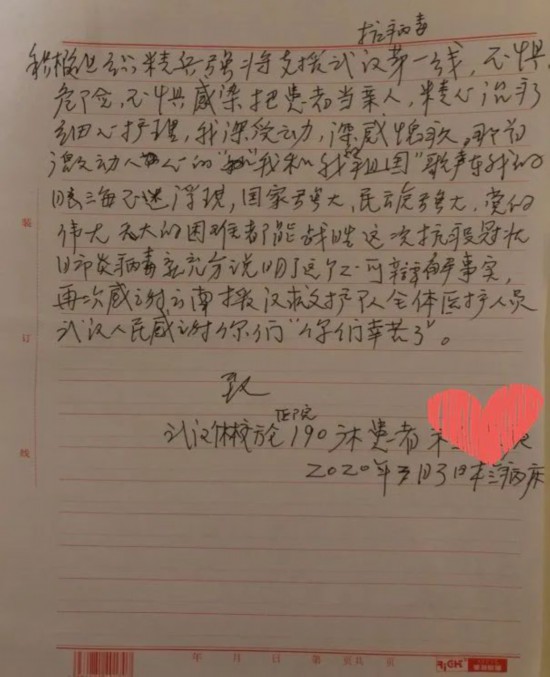 抗病毒
积极组织精兵强将支援武汉第一线，不惧
危险，不惧感染把患者当亲人，精心治疗
细心护理，我深受动，深感愧
激动人心的"我和我祖国"歌声在我的
脑海不迭浮现，国家强大，民族强大，党的
伟大 天大的困难都能战胜 这次抗役冠状
肺炎病毒就充分说明了这个不可辩解事实，
再次感谢云南援汉救护队全体医护人员
武汉人民感谢你们"你们辛苦了"。
致
医院
武汉体校方仓190床患者
2020年3月3日于病床
装
订
线
年 月 日 第 页共 页